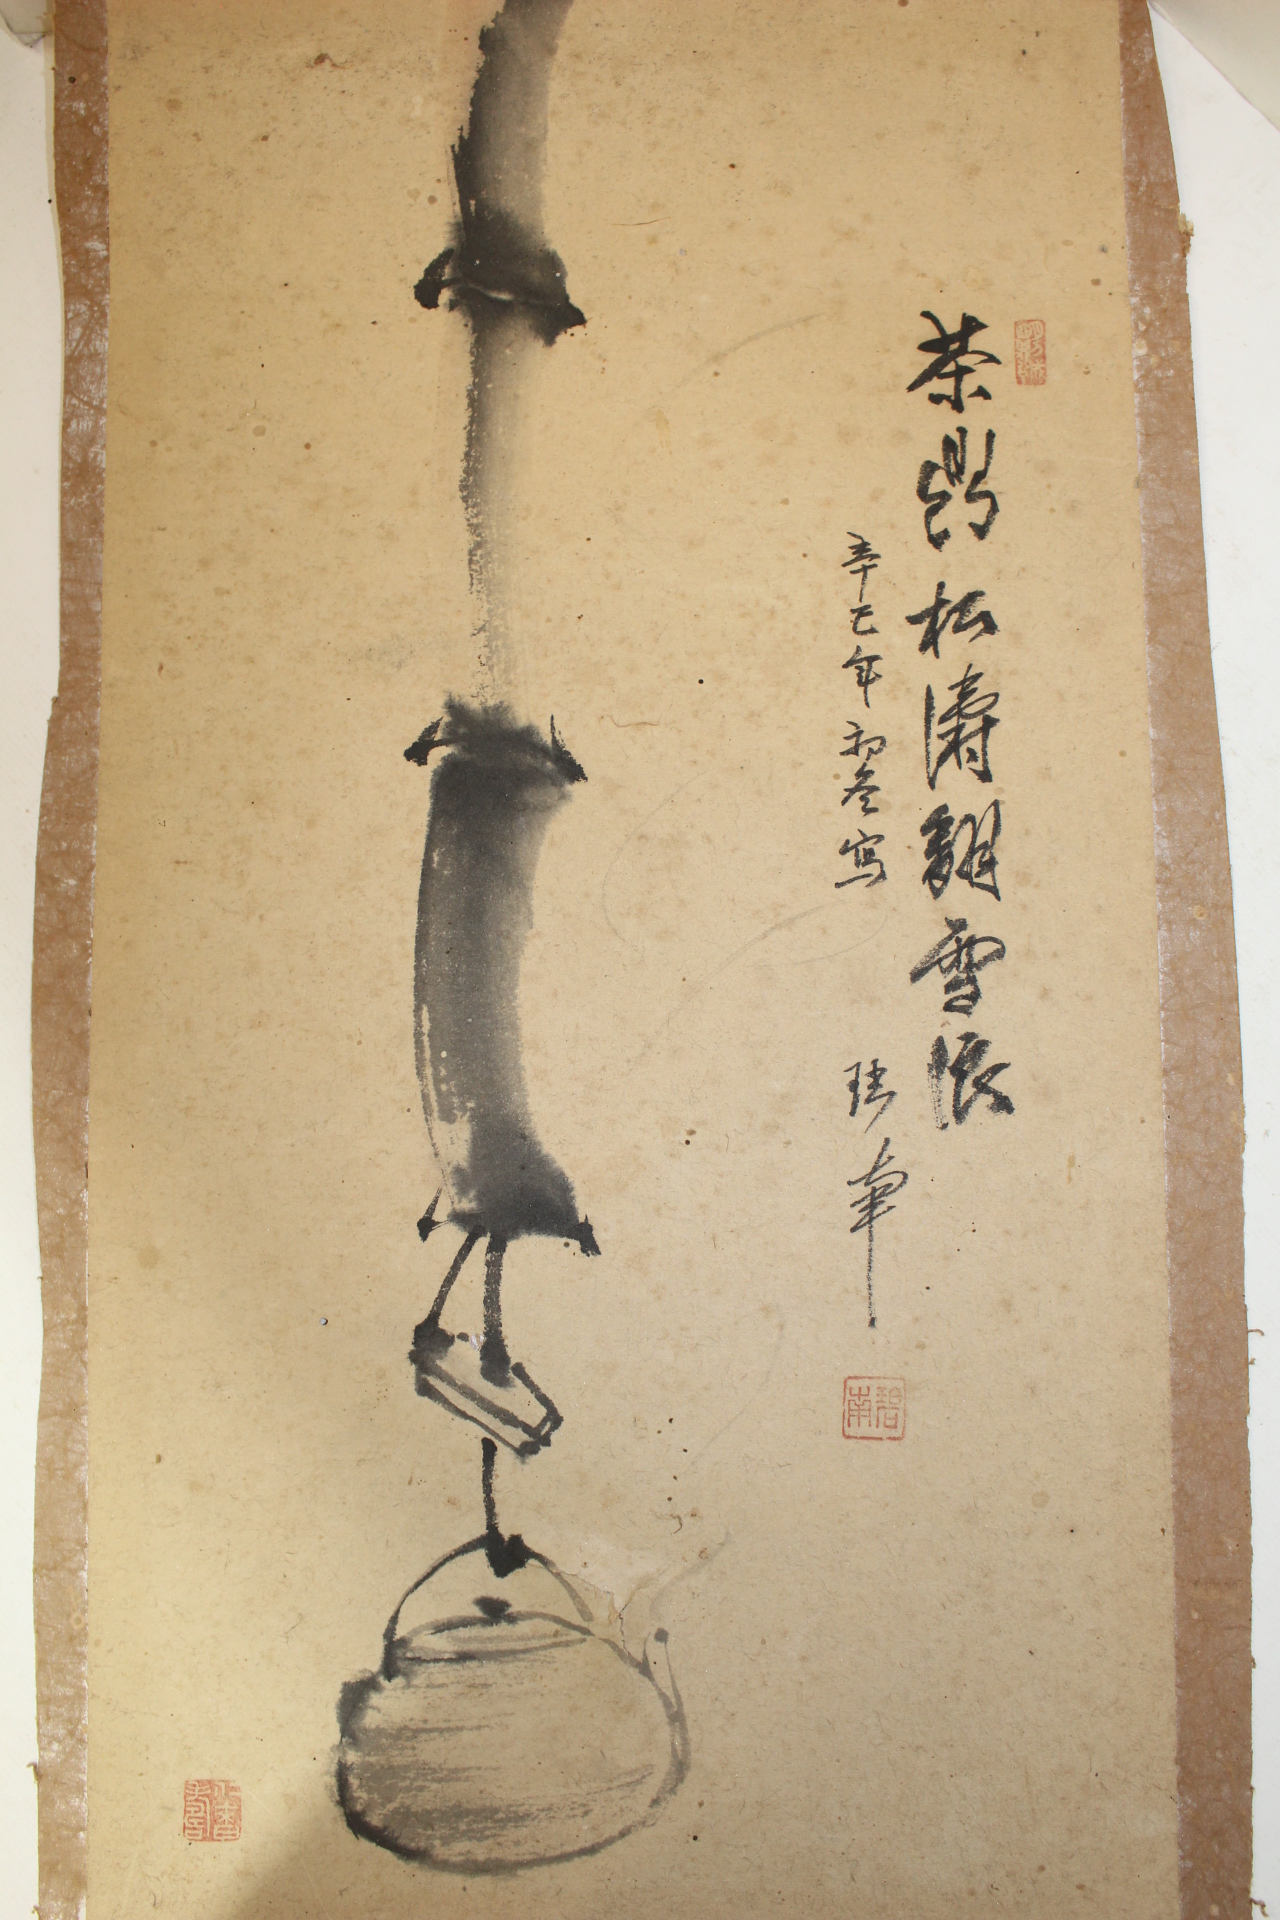 茶鼎松濤翻雪浪
辛巳年初冬写 碧南
碧南